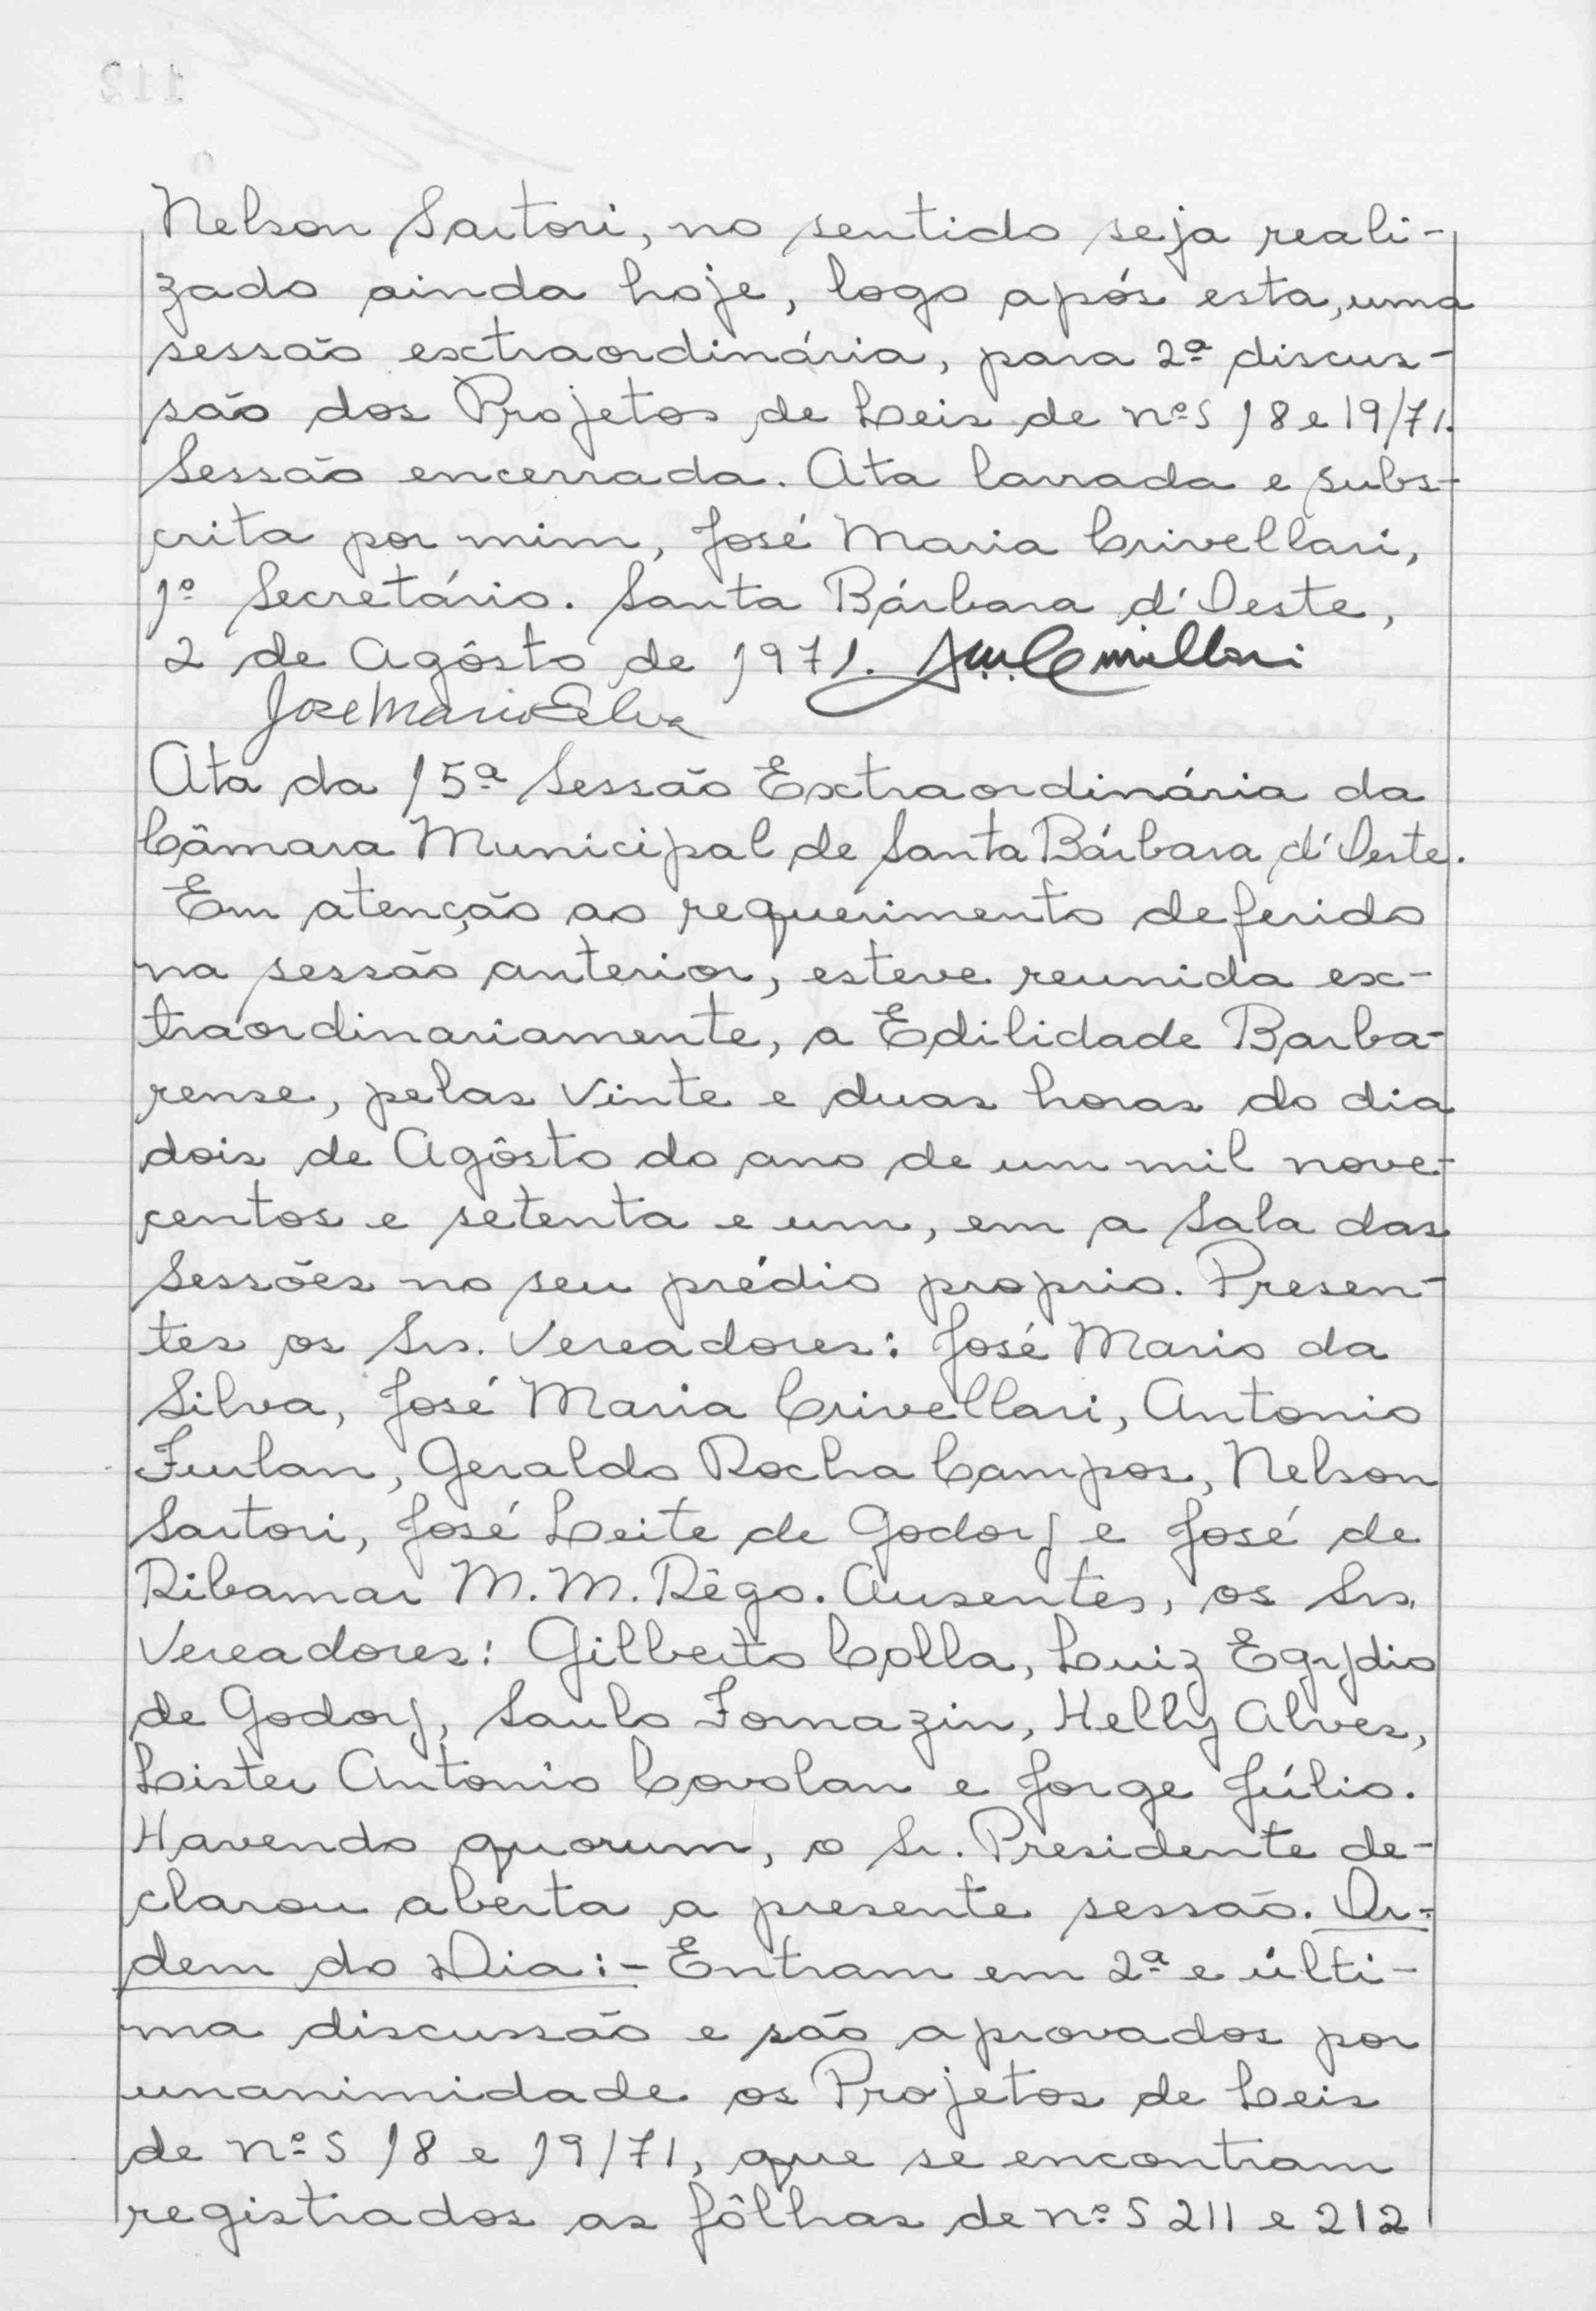 Nelson Sartori, no sentido seja reali-
zado ainda hoje, logo após esta, uma
sessão extraordinária, para 2ª discus-
são dos Projetos de Leis de nºs 18 e 19/71.
Sessão encerrada. Ata lavrada e subs-
crita por mim, José Maria Crivellari,
1º Secretário. Santa Bárbara d'Oeste,
2 de Agôsto de 1971.
José Mario Silva
Ata da 15ª Sessão Extraordinária da
Câmara Municipal de Santa Bárbara d'Oeste.
Em atenção ao requerimento deferido
na sessão anterior, esteve reunida ex-
traordinariamente, a Edilidade Barba-
rense, pelas vinte e duas horas do dia
dois de Agôsto do ano de um mil nove-
centos e setenta e um, em a Sala das
Sessões no seu prédio proprio. Presen-
tes os Srs. Vereadores: José Mario da
Silva, José Maria Crivellari, Antonio
Furlan, Geraldo Rocha Campos, Nelson
Sartori, José Leite de Godoy e José de
Ribamar M. M. Rêgo. Ausentes, os Srs.
Vereadores: Gilberto Colla, Luiz Egydio
de Godoy, Saulo Fornazin, Helly Alves,
Lister Antonio Covolan e Jorge Júlio.
Havendo quorum, o Sr. Presidente de-
clarou aberta a presente sessão. Or-
dem do Dia:- Entram em 2ª e últi-
ma discussão e são aprovados por
unanimidade os Projetos de Leis
de nºs 18 e 19/71, que se encontram
registrados as fôlhas de nºs 211 e 212